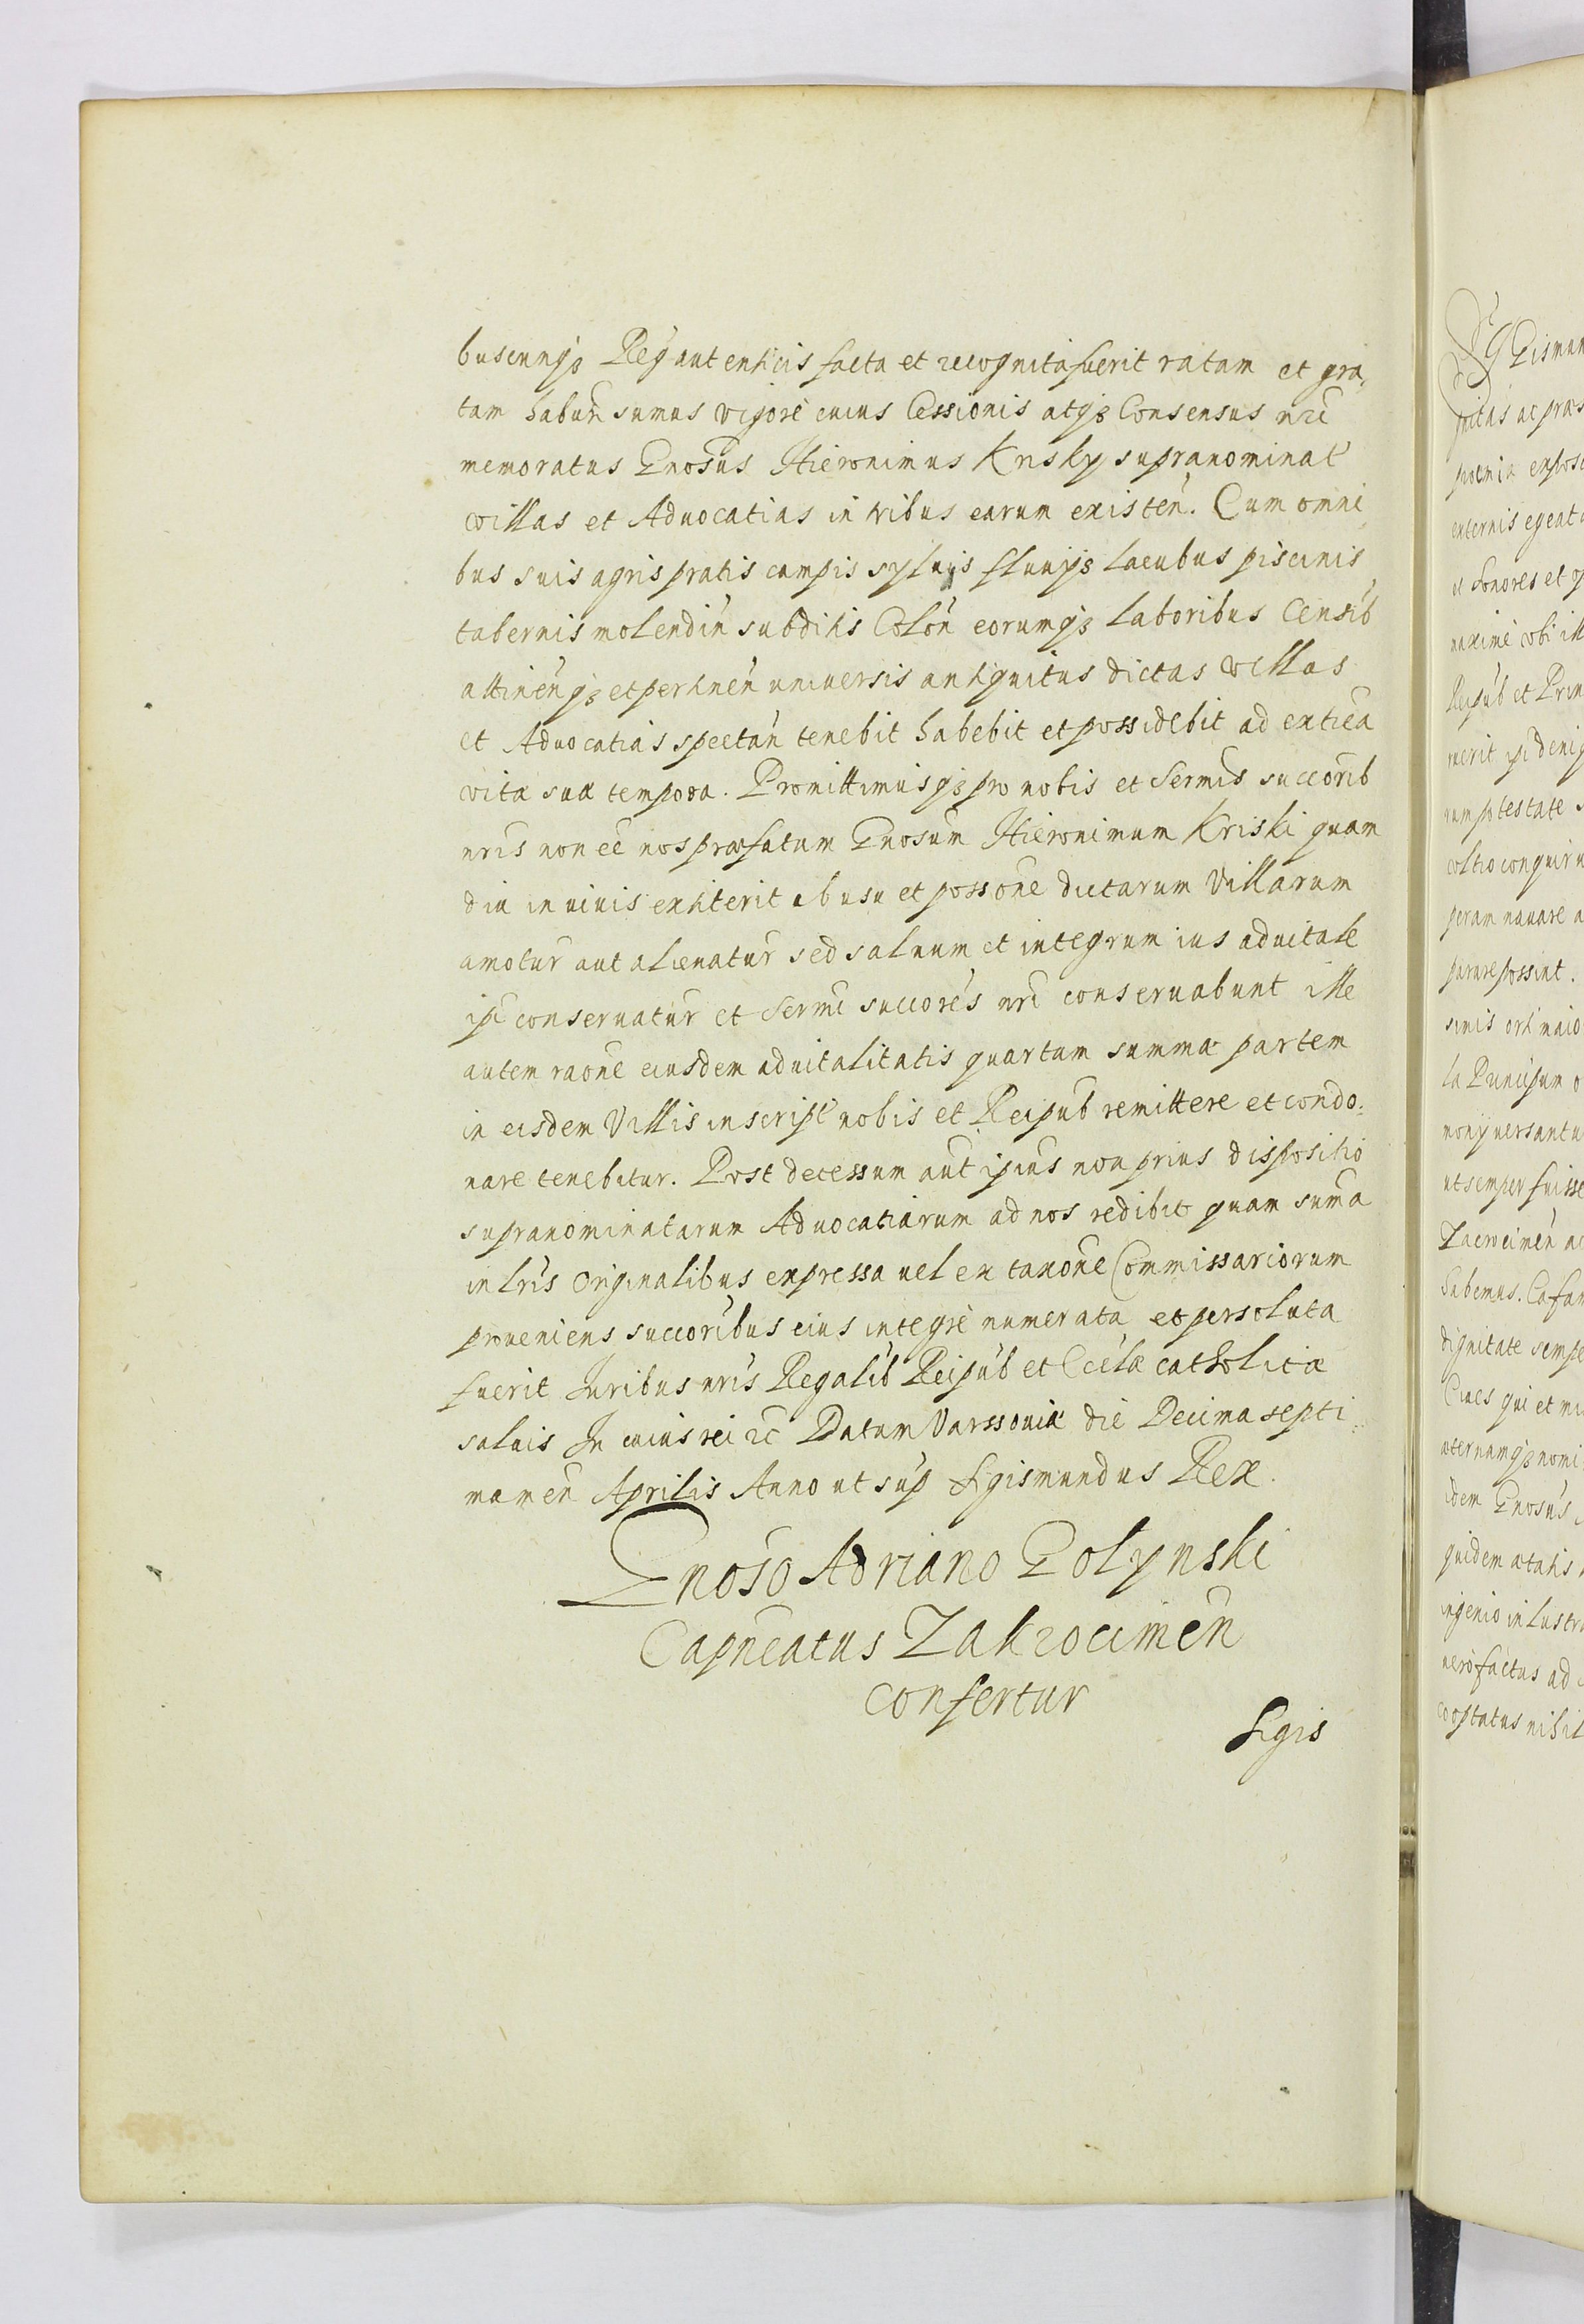 buscunqꝫ Reg autenticis facta et recognita fuerit ratam et gra,
tam haburi sumus vigore cuius Cessionis atqꝫ Consensus nri
memoratus Gnosus Hieronimus Krisky supranominat
villas et Aduocatias in tribus earum existen. Cum omni
bus suis agris pratis campis syluis fluuijs lacubus piscinis
tabernis molendin subditis Colon eorumqꝫ laboribus Censib
attinenqꝫ et pertinen uniuersis antiquitus dictas villas
et Aduocatias spectan tenebit habebit et possidebit ad extrea
vitæ suæ tempora. Promittimusqꝫ pro nobis et Sermis succorib
nris non ee nos præfatum Gnosum Hieronimum Kriski quam
diu in uiuis extiterit ab usu et possone dictarum Villarum
amotur aut alienatur sed saluum et integrum ius aduitale
ipi conseruatur et Sermi succores nri conseruabunt ille
autem raone eiusdem aduitalitatis quartam summæ partem
in eisdem Villis inscript nobis et Reipub remittere et condo:
nare tenebitur. Post decessum aut ipius non prius dispositio
supranominatarum Aduocatiarum ad nos redibit quam suma
in lris Originalibus expressa uel ex taxone Commissariorum
proueniens succoribus eius integre numerata et persoluta
fuerit Iuribus nris Regalib Reipub et Eccle catholicæ
saluis In cuius rei rc Datum Varssouiæ die Decima septi:
ma men Aprilis Anno ut sup Sigismundus Rex.
Gnoso Adriano Golynski
Capneatus Zakrocimen
confertur
Sigis